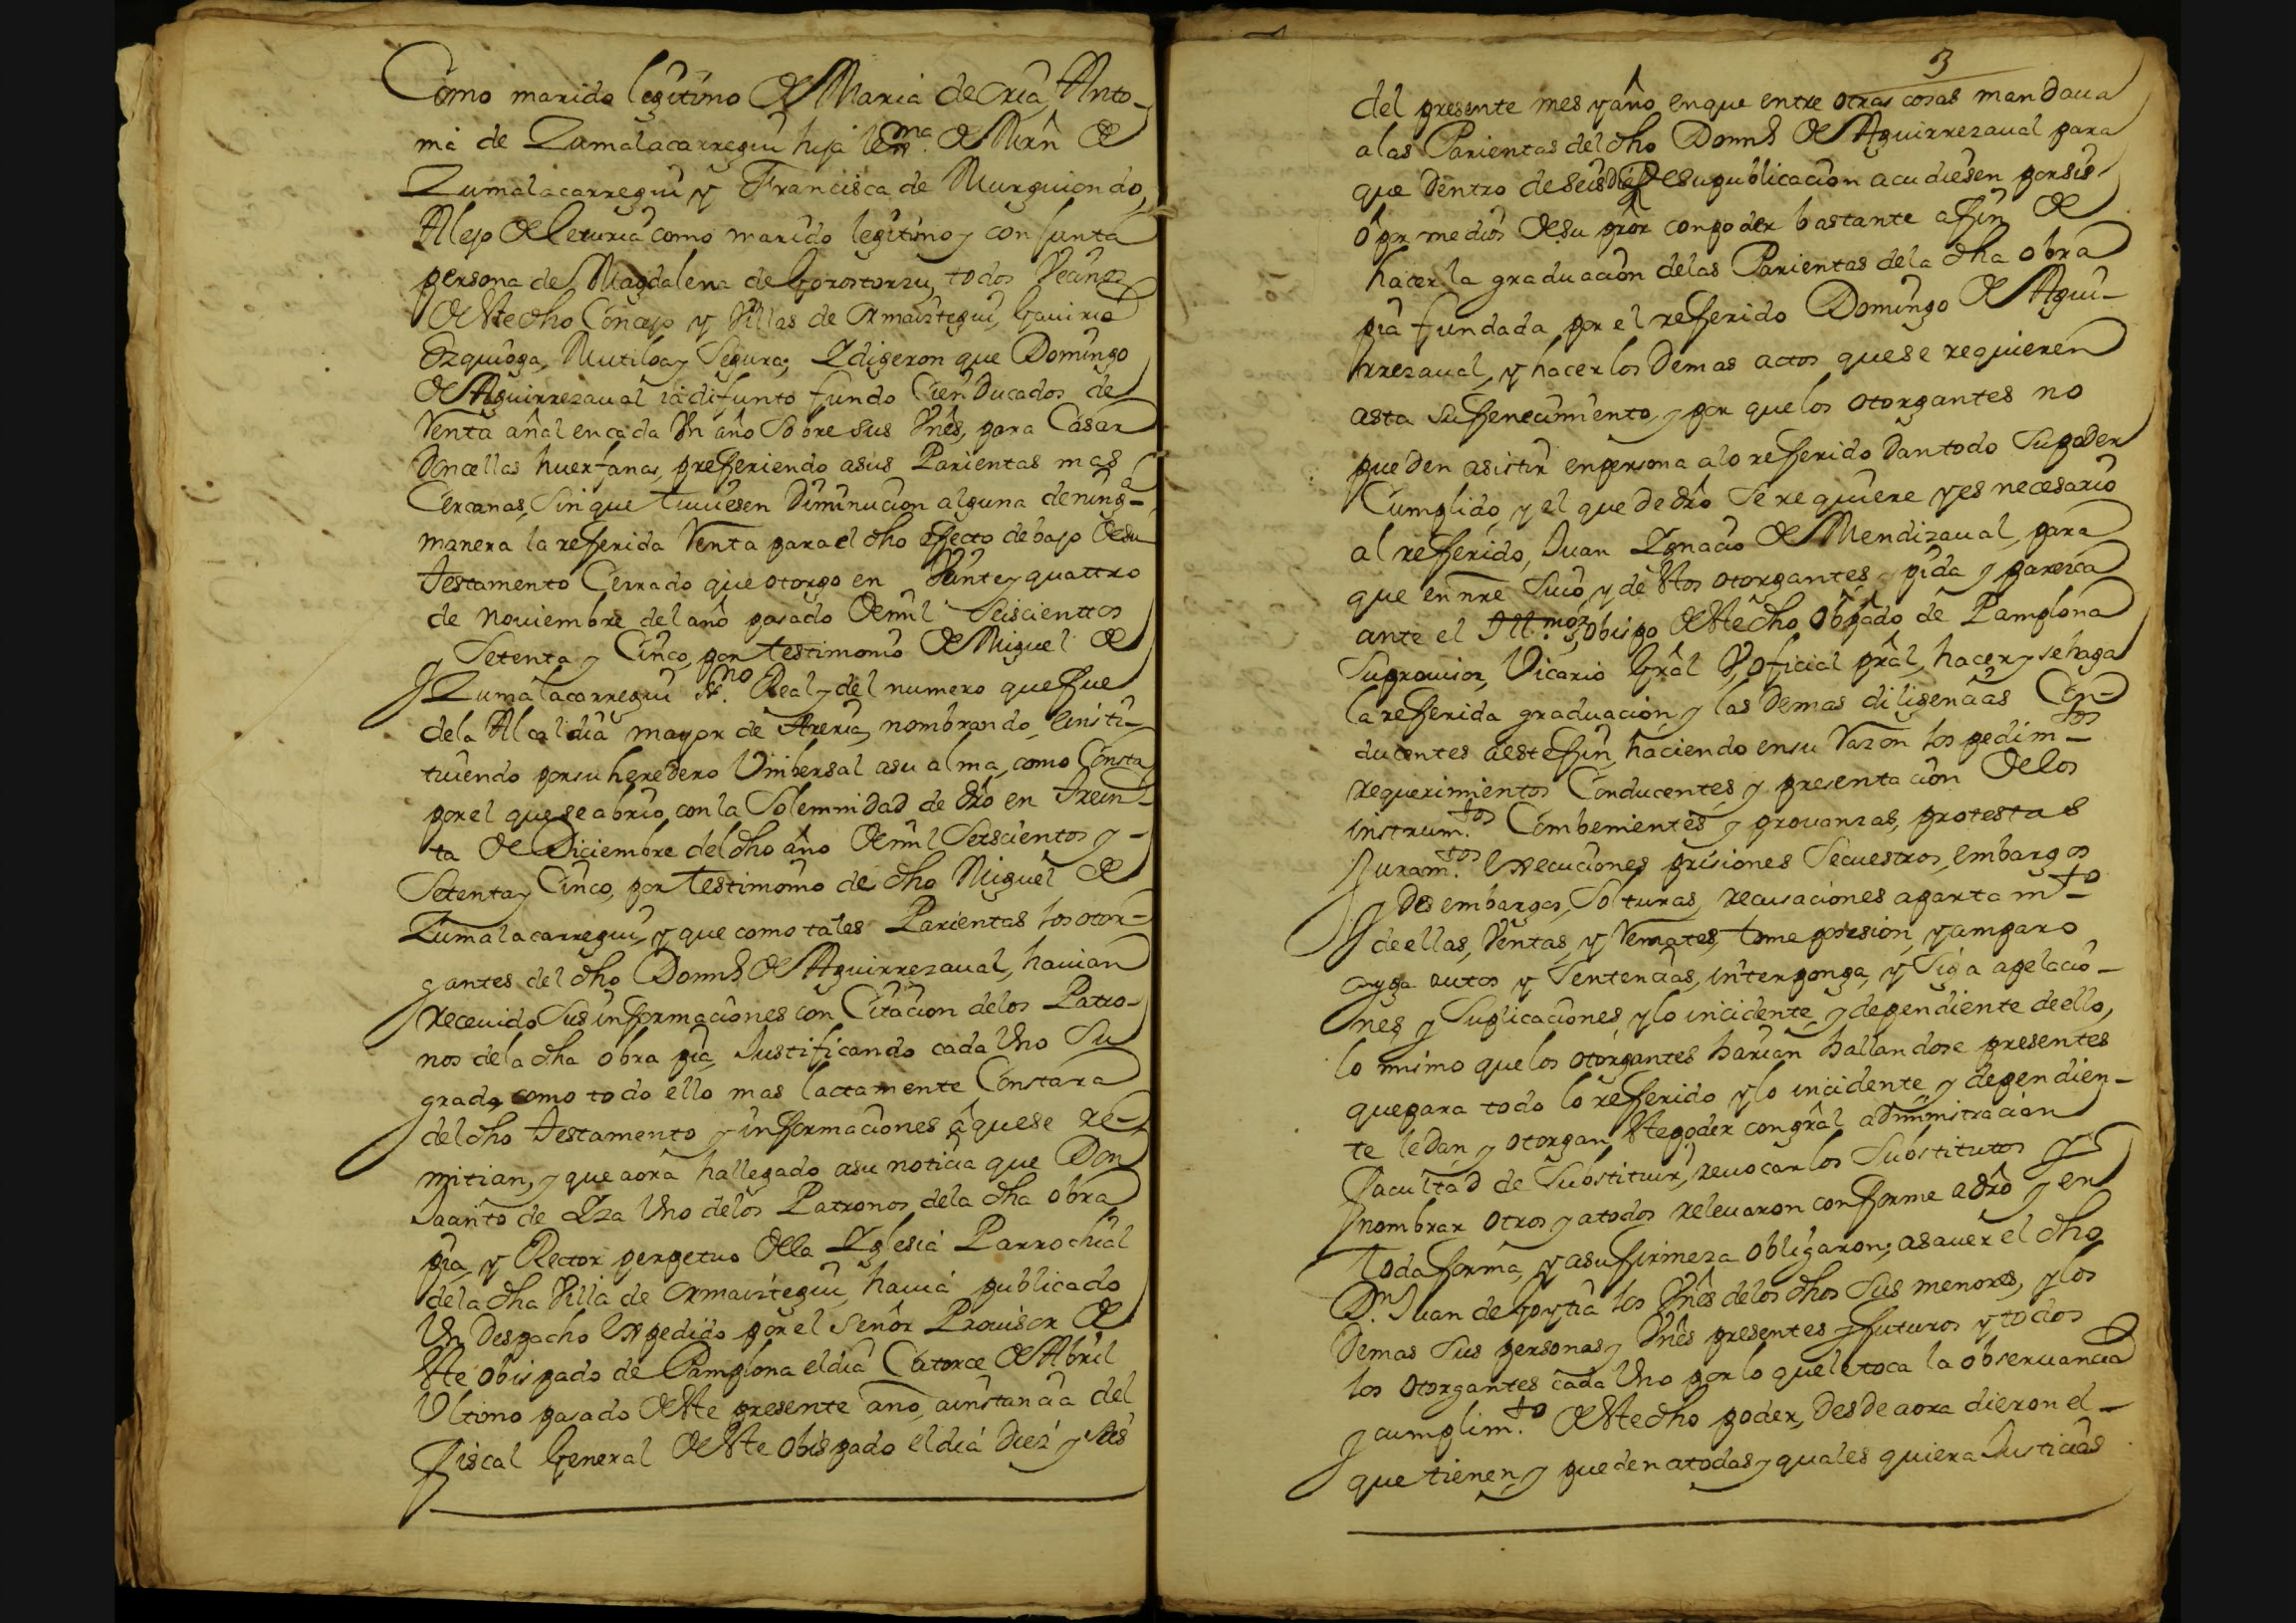 Como marido legitimo de Maria de oria, Anto-
nia de Zumalacarregui hija legma. de Mrn de
Zumalacarregui y Francisca de Murguiondo,
Alejo de leturia como marido legitimo y conjunta
persona de Magdalena de Gorostorzu, todos Vecinos
deste dho Concejo y Villas de Ormaiztegui, Gauiria
Ezquioga, Mutiloa y Segura; Y digeron que Domingo
de Aguirrezaual ia difunto fundo Cien Ducados de
Renta añal en cada Un año Sobre sus Vnês, para Casar
Doncellas huerfanas, prefferiendo asus Parientas mas
Cercanas, Sin que tuuiesen Diminucion alguna de ning-a
manera la refferida Renta para el dho effecto debajo de su
testamento Cerrado que otorgo en Veinte y quattro
de Nouiembre del año pasado de mil Seiscienttos
y Setenta y Cinco, por testimonio de Miguel de
Zumalacarregui SSno. Real y del numero que fue
dela Alcaldia mayor de Areria, nombrando, e insti-
tuiendo por su heredero Unibersal asu alma, como Consta
por el que se abrio, con la Solemnidad de dro en trein-
ta de Diciembre del dho año de mil Seiscientos y -
Setenta y Cinco, por testimonio de dho Miguel de
Zumalacarregui, y que como tales Parientas los otor-
gantes del dho Domingo de Aguirrezaual, hauian
Receuido Sus informaciones con Citacion delos Patro-
nos dela dha obra pia, Justificando cada Uno Su
grado, como todo ello mas lactamente Constara
del dho testamento y informaciones âque se re-
mitian, y que aora hallegado asu noticia que Don
Jaanto de Yza Uno delos Patronos dela dha obra
pia, y Rector perpetuo de la Yglesia Parrochial
dela dha Villa de Ormaiztegui, hauia publicado
Un Despacho expedido por el Señor Prouisor de
este obispado de Pamplona el dia Catorce de Abril
Ultimo pasado deste presente año, a instancia del
Fiscal General deste obispado el dia Diez y seis
3
del presente mes y año, en que entre otras cosas mandaua
alas Parientas del dho Domingo de Aguirrezaual para
que Dentro de seis Dias de su publicacion acudiesen por sis
ô por medios de su pror con poder bastante afin de
hacer la graduacion delas Parientas dela dha obra
pia fundada por el refferido Domingo de Agui-
rrezaual, y hacer los Demas actos que se requieren
asta su fenecimiento, y por que los otorgantes no
pueden asistir en persona alo refferido Dan todo Su poder
Cumplido, y el que de dro Se requiere y es necesario
al refferido, Juan Ygnacio de Mendizaual, para
que en nre Suio, y destos otorgantes, pida y parezca
ante el Illmo. Sor obispo deste dho obpado de Pamplona
Su prouisor, Vicario Grâl V oficial prâl, hacer y se haga
la refferida graduacion, y las Demas diligencias Con-
ducentes aeste fin, haciendo en su Razon los pedimtos
requerimientos Conducentes, y presentacion delos
instrum.tos Combenientes, y prouanzas, protestas
Juram.tos execuciones prisiones Secuestros, embargos
y Desembargos, Solturas, recusaciones apartamto
de ellas, Ventas, y Remates, tome posesion, y amparo
oyga autos y Sentencias, interponga, y Siga apelacio-
nes, y Suplicaciones, y lo incidente, y dependiente de ello,
lo mimo que los otorgantes harian hallandose presentes
que para todo lo refferido y lo incidente, y dependien-
te le Dan, y otorgan, este poder con grâl administracion
Facultad de Substituir, reuocar los Substitutos y
nombrar otros, y atodos releuaron conforme a dro y en
toda forma, y asu firmeza obligaron; asauer el dho
Dn. Juan de Goytia los Vnês delos dhos Sus menores, y los
Demas Sus personas, y Vnês presentes, y futuros y todos
los otorgantes cada Uno por lo que le toca la obseruancia
y cumplim.to deste dho poder, Desde aora dieron el -
que tienen, y pueden atodas, y quales quiera Justicias